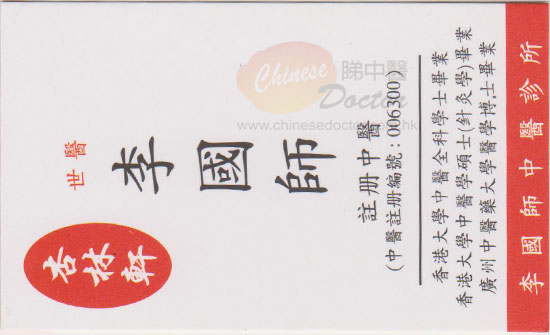 杏林軒
世醫
李國師
註册中醫
(中醫註册編號:006300)
香港大學中醫全科學士畢業
香港大學中醫學碩士(針灸學)畢業
廣州中醫藥大學醫學博士畢業
李國師中醫診所
Chinese 睇中醫
Doctor